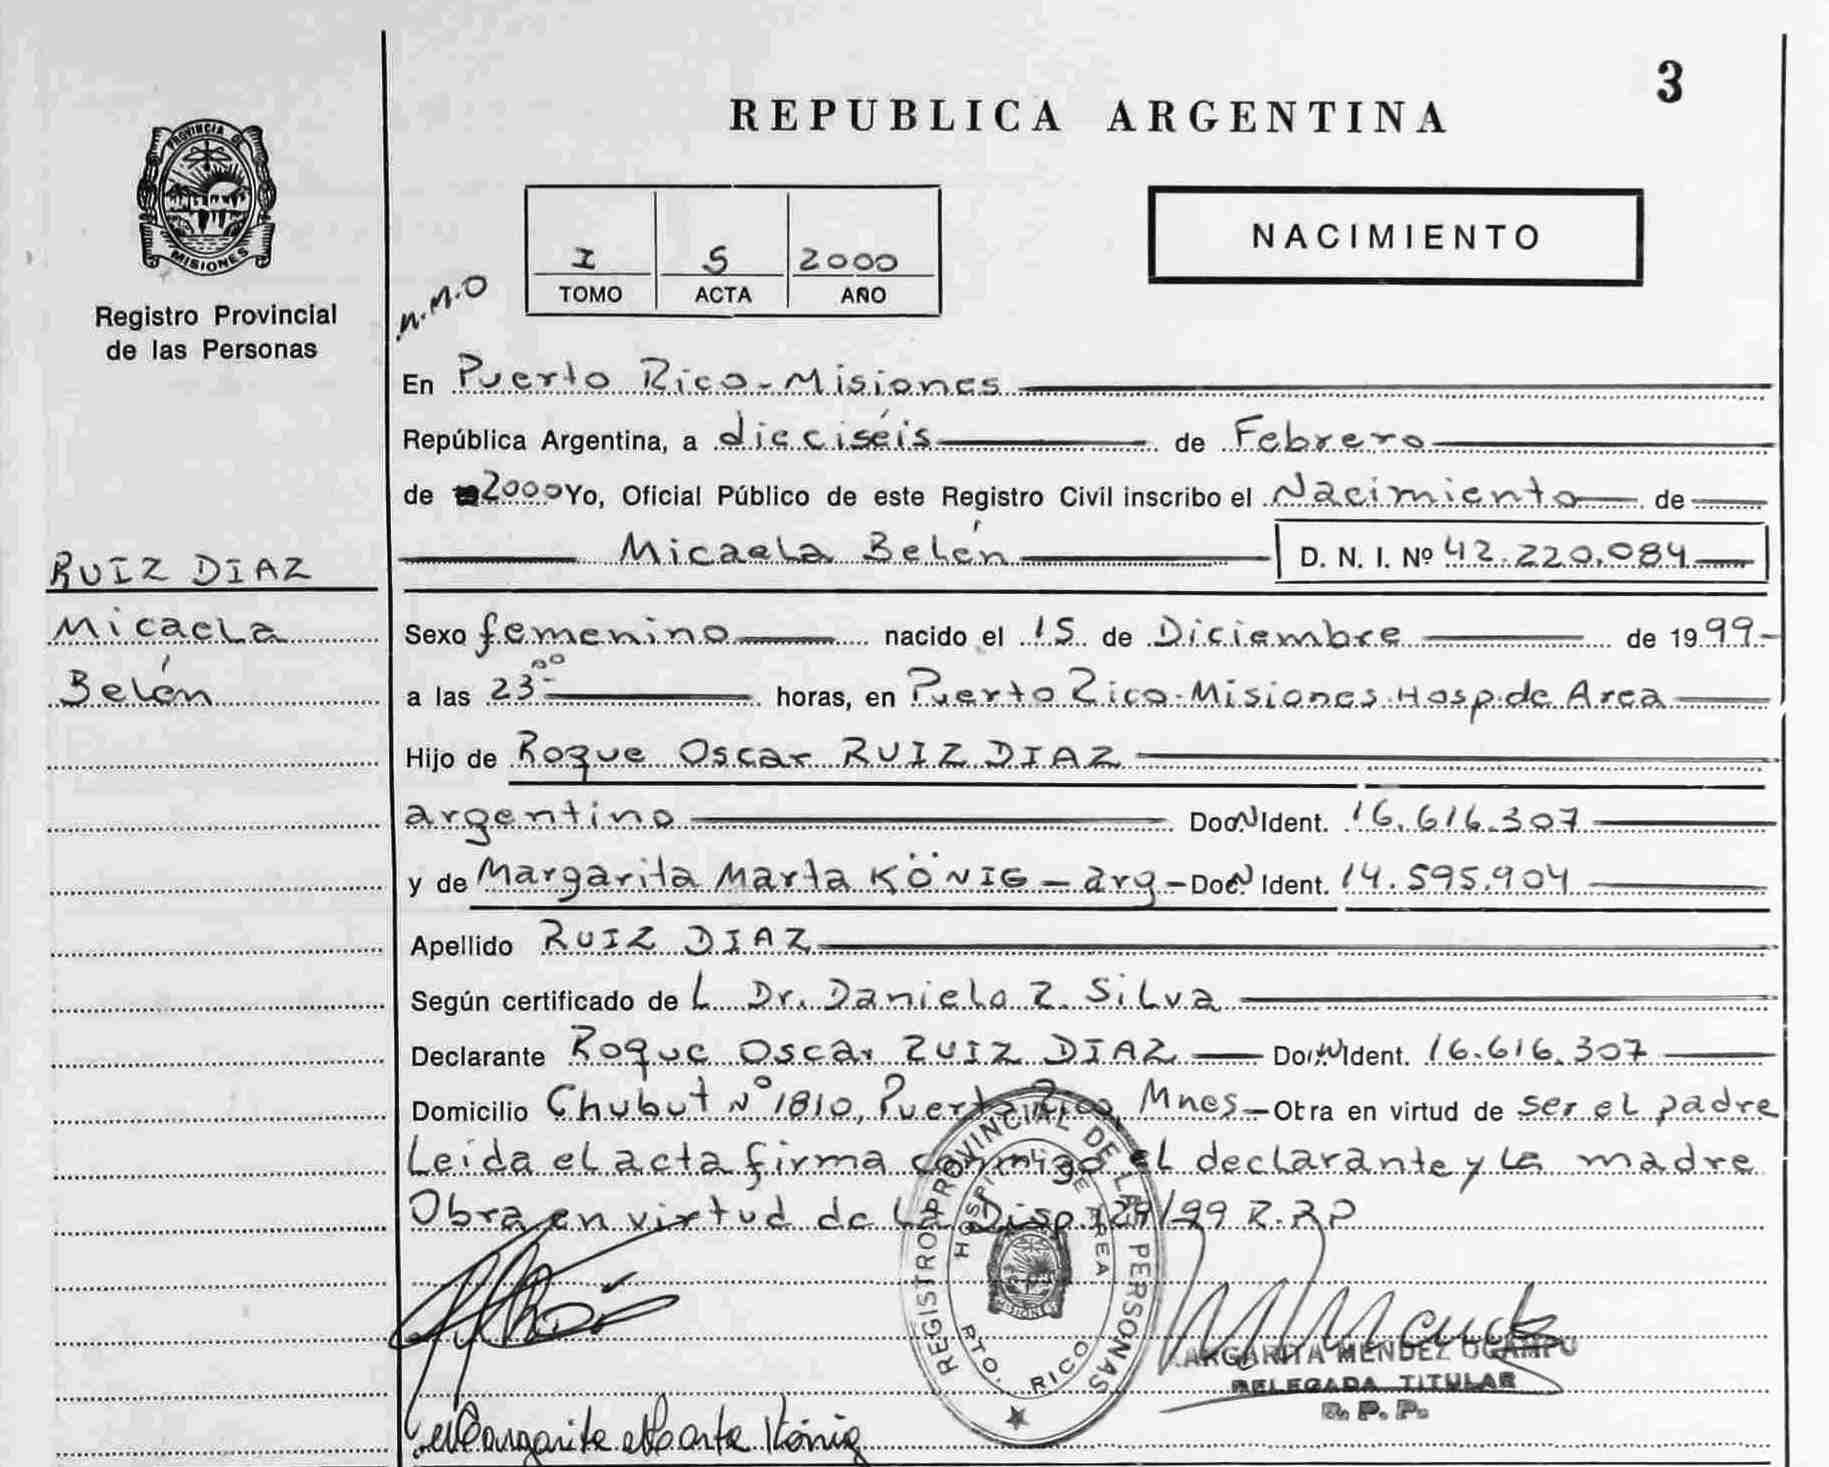 3
REPUBLICA ARGENTINA
PROVINCIA DE
MISIONES
Registro Provincial
de las Personas
NACIMIENTO
I 5 2000
TOMO ACTA AÑO
n.n.o
En Puerto Rico-Misiones
República Argentina, a dieciséis de Febrero
de 2000 Yo, Oficial Público de este Registro Civil inscribo el Nacimiento de
Micaela Belén D. N. I. Nº 42.220.084
RUIZ DIAZ
Micaela
Belén
Sexo femenino nacido el 15 de Diciembre de 1999-
a las 23⁰⁰ horas, en Puerto Rico-Misiones-Hosp.de Area
Hijo de Roque Oscar RUIZ DIAZ
argentino Doc.N Ident. 16.616.307
y de Margarita Marta KÖNIG - arg - Doc.N Ident. 14.595.904
Apellido RUIZ DIAZ
Según certificado de L Dr. Daniel R. Silva
Declarante Roque Oscar RUIZ DIAZ Ident. 16.616.307
Domicilio Chubut Nº 1810, Puerto Rico, Mnes- Obra en virtud de ser el padre
Leída el acta firma conmigo el declarante y la madre
Obra en virtud de la Disp. 129/99 R.R.P
REGISTRO PROVINCIAL DE LAS PERSONAS
HOSPITAL DE AREA
MISIONES
PTO. RICO
MARGARITA MENDEZ OCAMPO
DELEGADA TITULAR
R. P. P.
Margarita Marta König